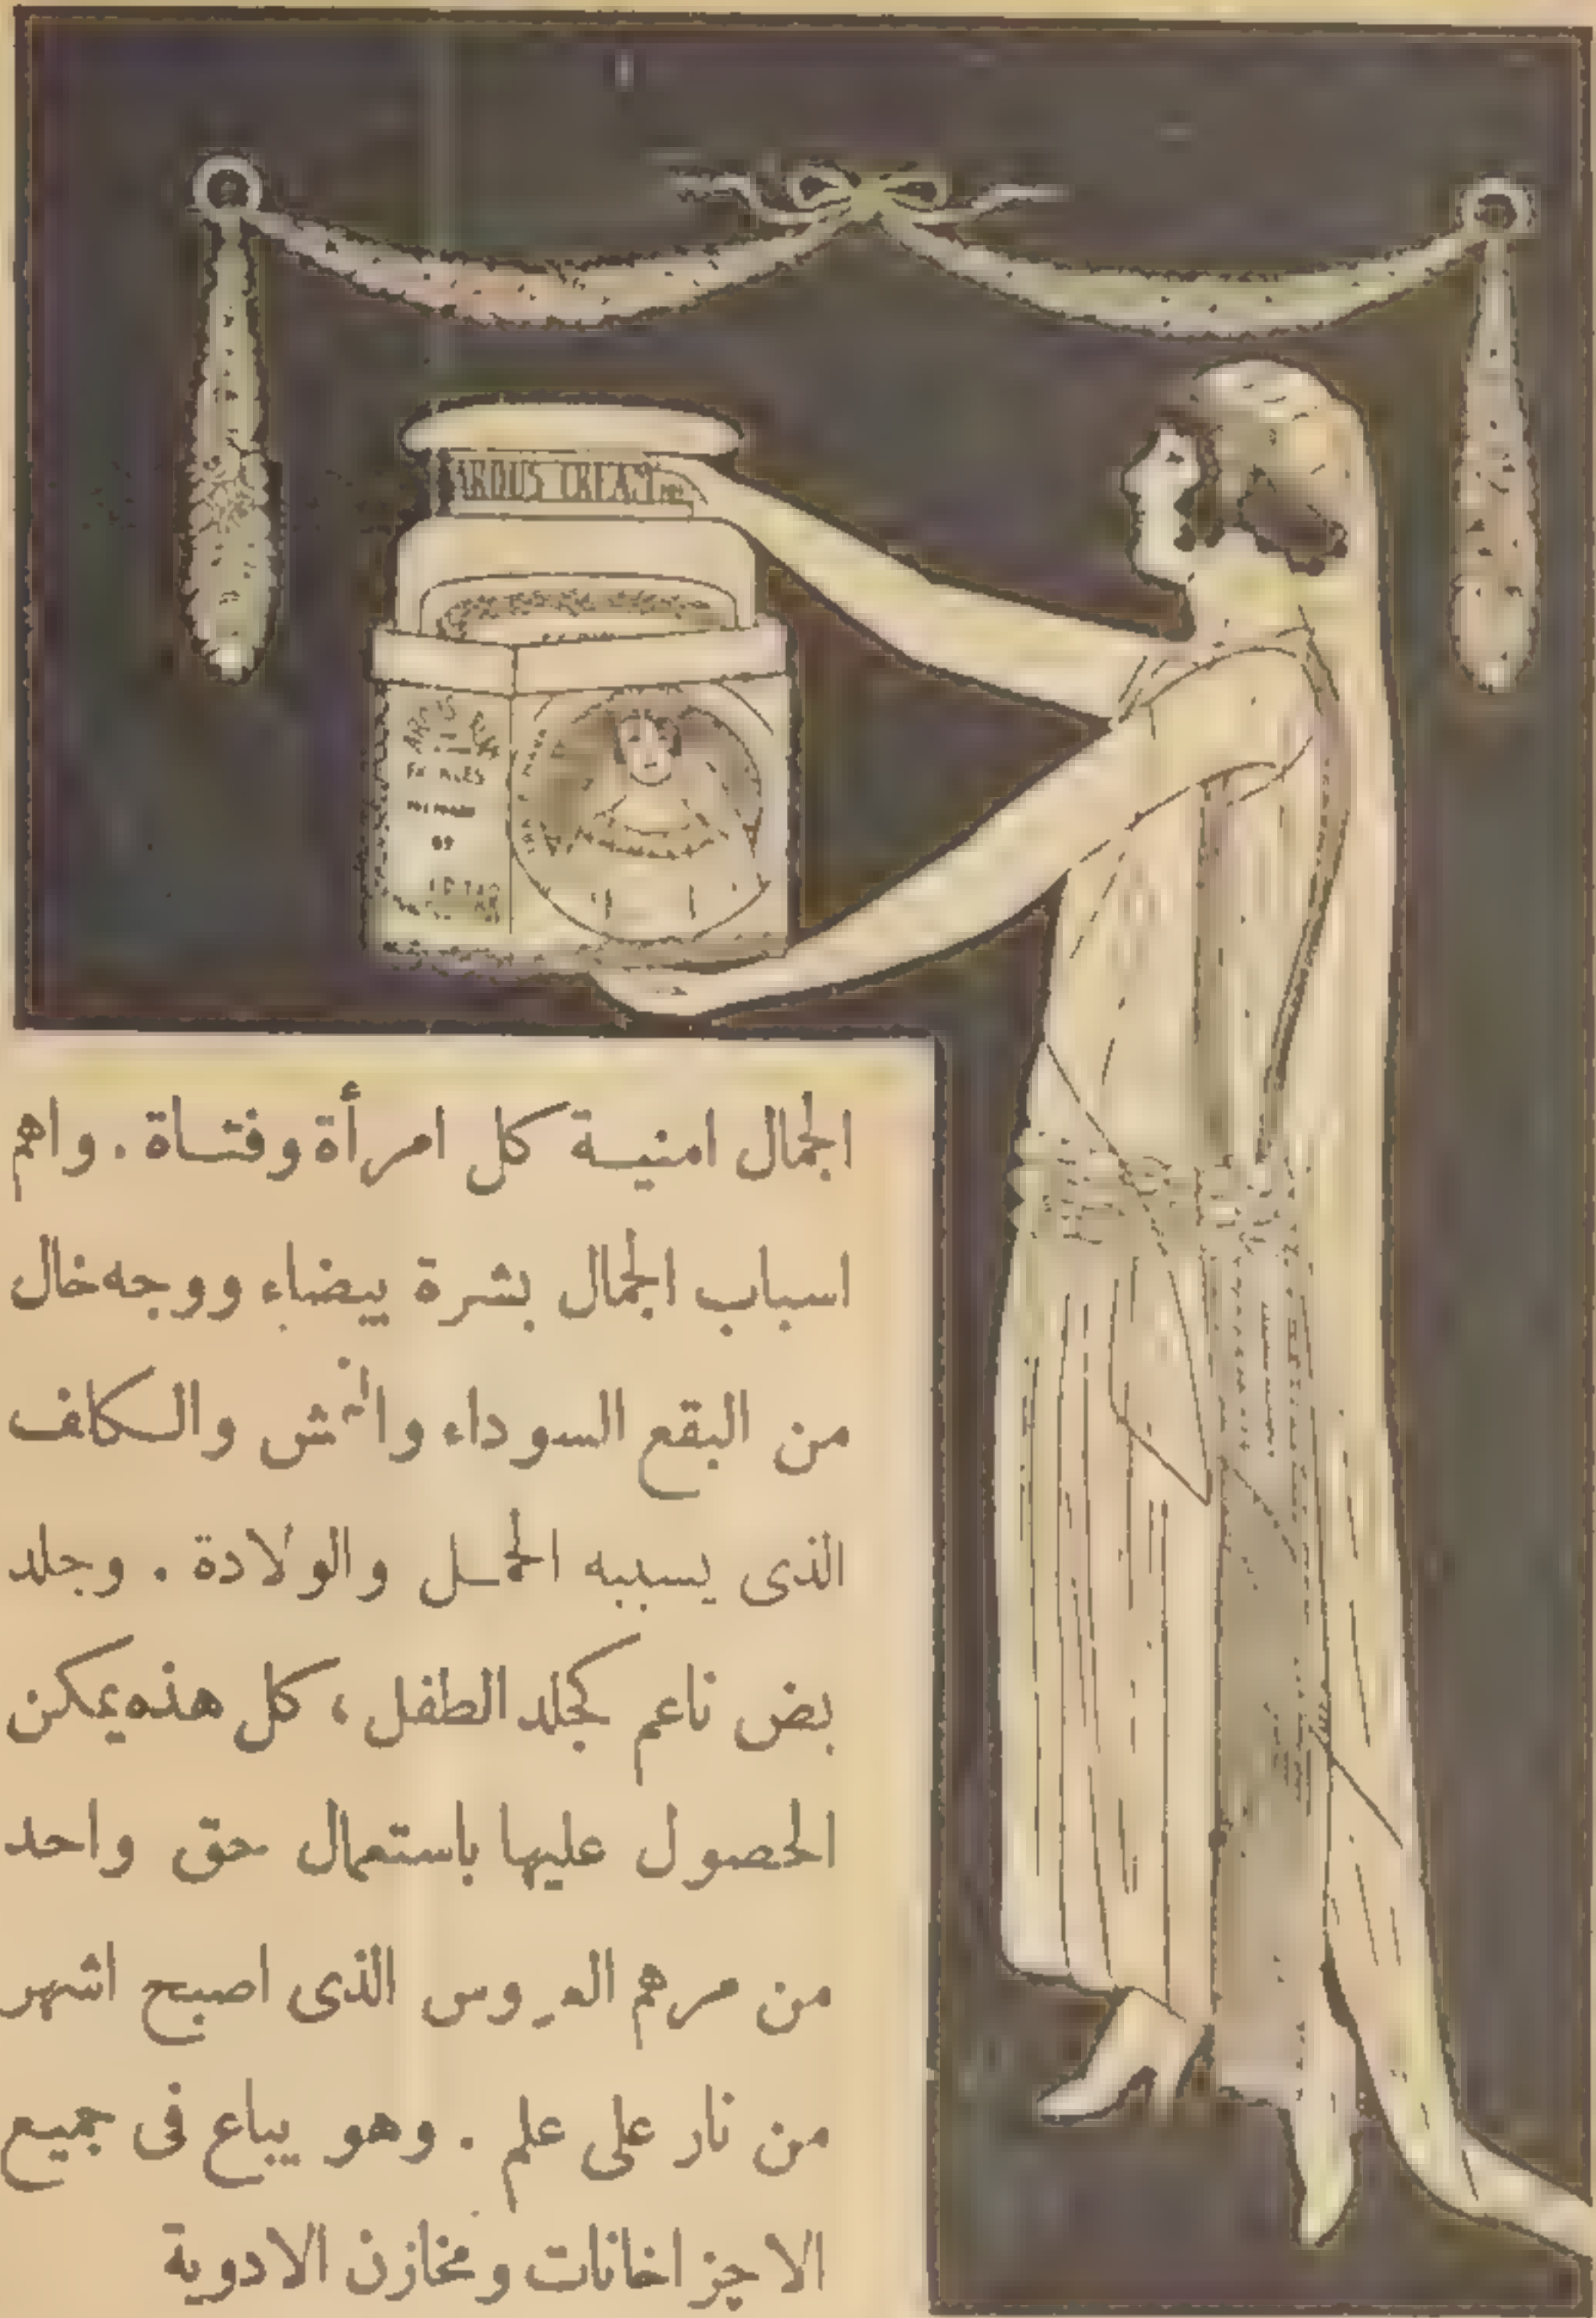 AROUS CREAM
الجمال امنية كل امرأة وفتاة . واهم
اسباب الجمال بشرة بيضاء ووجه خال
من البقع السوداء والنمش والكلف
الذى يسببه الحمل والولادة . وجلد
بض ناعم كجلد الطفل ، كل هذه يمكن
الحصول عليها باستعمال حق واحد
من مرهم العروس الذى اصبح اشهر
من نار على علم . وهو يباع فى جميع
الاجزاخانات ومخازن الادوية